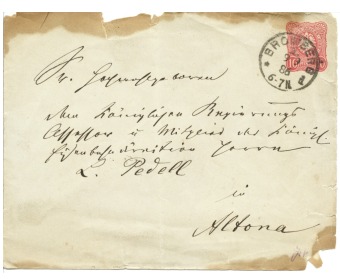 BROMBERG
86
6-7N.
10
Sr. Hochwohlgeboren
dem Königlichen Regierungs
Assessor u Mitglied der Königl
Eisenbahndirektion Herrn
L. Pedell
in
Altona